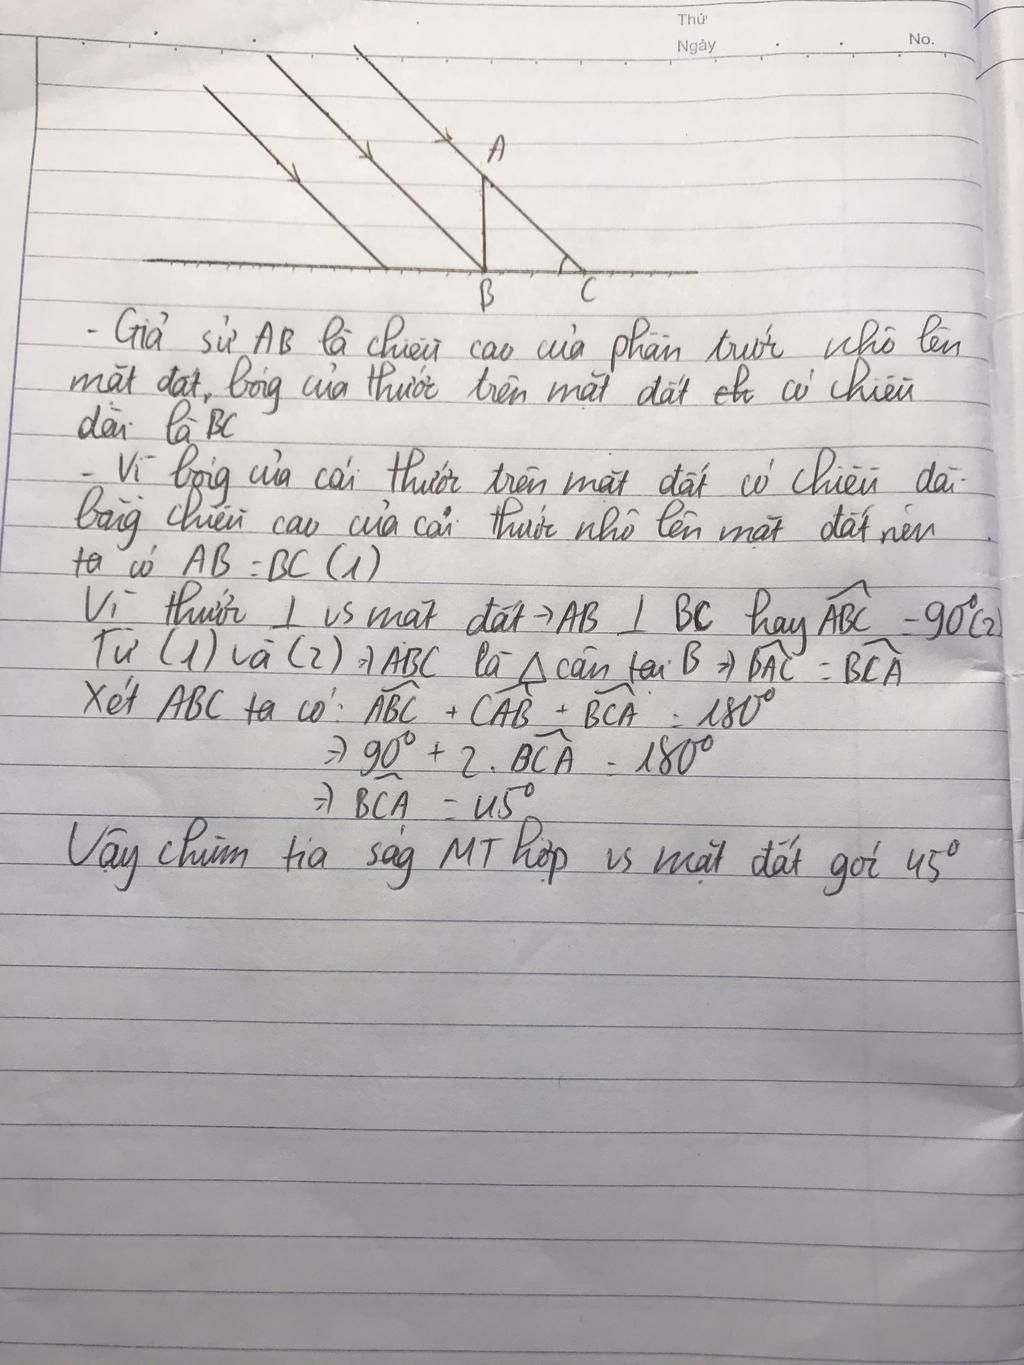 Thứ
Ngày No.
A
B C
- Giả sử AB là chiều cao của phần trước nhô lên
mặt đất, bóng của thước trên mặt đất có chiều
dài là BC
- Vì bóng của cái thước trên mặt đất có chiều dài
bằng chiều cao của cái thước nhô lên mặt đất nên
ta có AB = BC (1)
Vì thước ⊥ vs mặt đất → AB ⊥ BC hay ABC = 90° (2)
Từ (1) và (2) => ABC là △ cân tại B => BAC = BCA
Xét ABC ta có: ABC + CAB + BCA = 180°
=> 90° + 2. BCA = 180°
=> BCA = 45°
Vậy chùm tia ság MT hợp vs mặt đất gói 45°